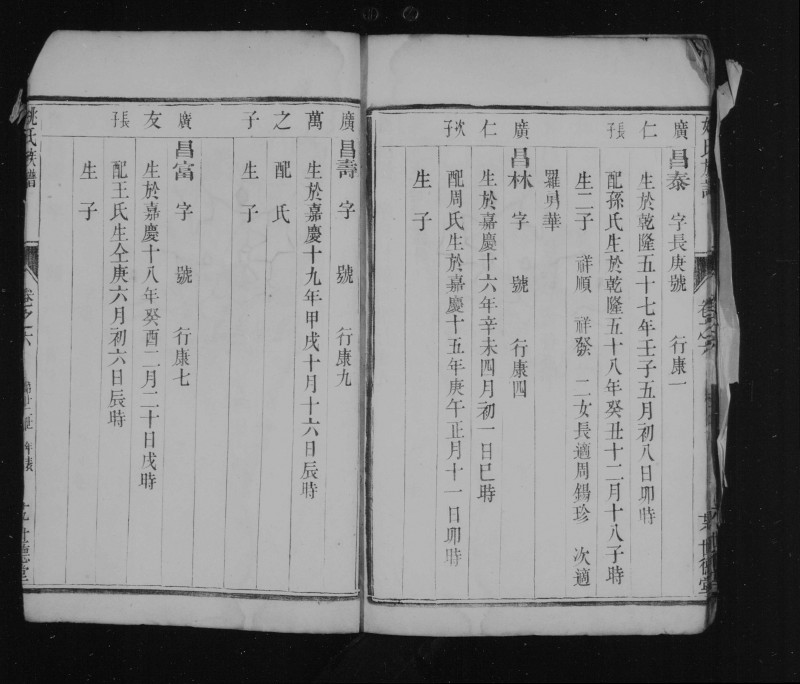 廣仁長子昌泰 字長庚號 行康一
生於乾隆五十七年壬子五月初八日卯時
配孫氏生於乾隆五十八年癸丑十二月十八子時
生二子 祥順 祥發 二女長適周錫珍 次適
羅 華
廣仁次子昌林 字 號 行康四
生於嘉慶十六年辛未四月初一日巳時
配周氏生於嘉慶十五年庚午正月十一日卯時
生子
廣萬之子昌壽 字 號 行康九
生於嘉慶十九年甲戌十月十六日辰時
配 氏
生子
廣友長子昌富 字 號 行康七
生於嘉慶十八年癸酉二月二十日戌時
配王氏生仝庚六月初六日辰時
生子
姚氏族譜 卷之六